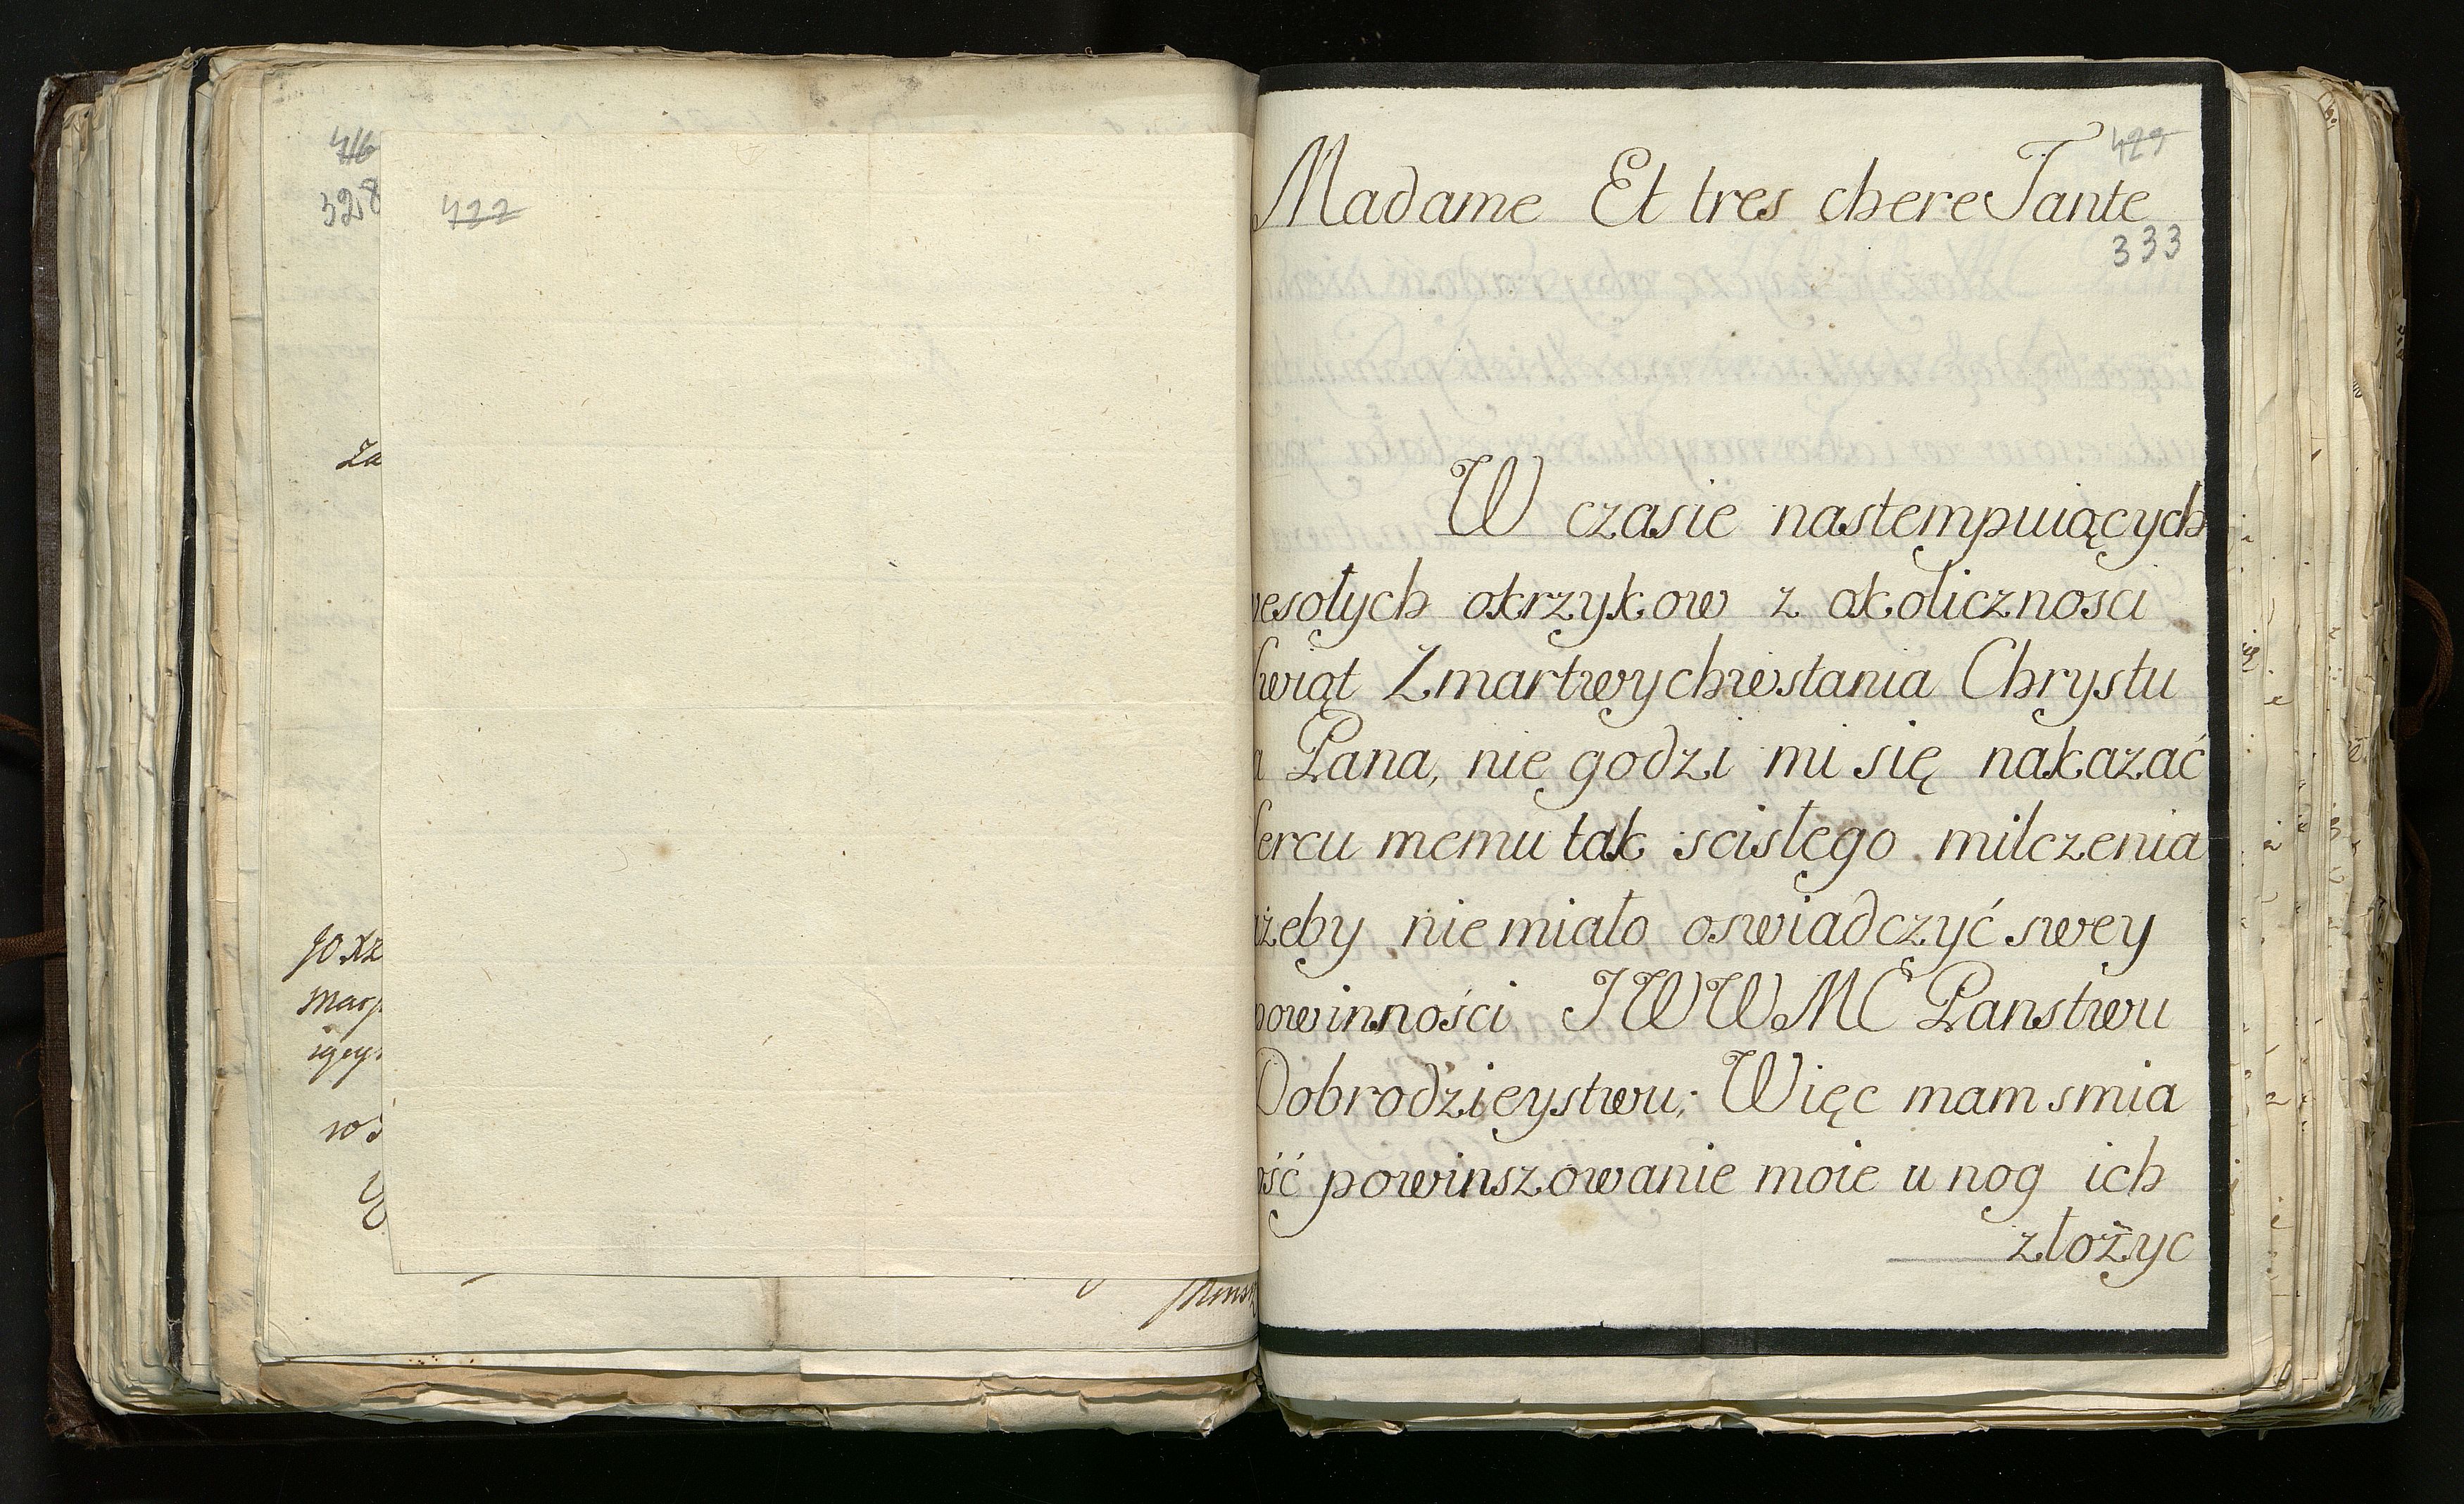 416
328
422
Za
429
Madame Et tres chere Tante
333
W czasie nastempuiących
wesołych okrzykow z okolicznosci
Swiąt Zmartwychwstania Chrystu
a Pana, nie godzi mi się nakazać
Sercu memu tak scisłego milczenia
ażeby nie miało oswiadczyć swey
powinności JWWMC Panstwu
Dobrodzieystwu; Więc mam smia
ość powinszowanie moie u nog ich
złożyc